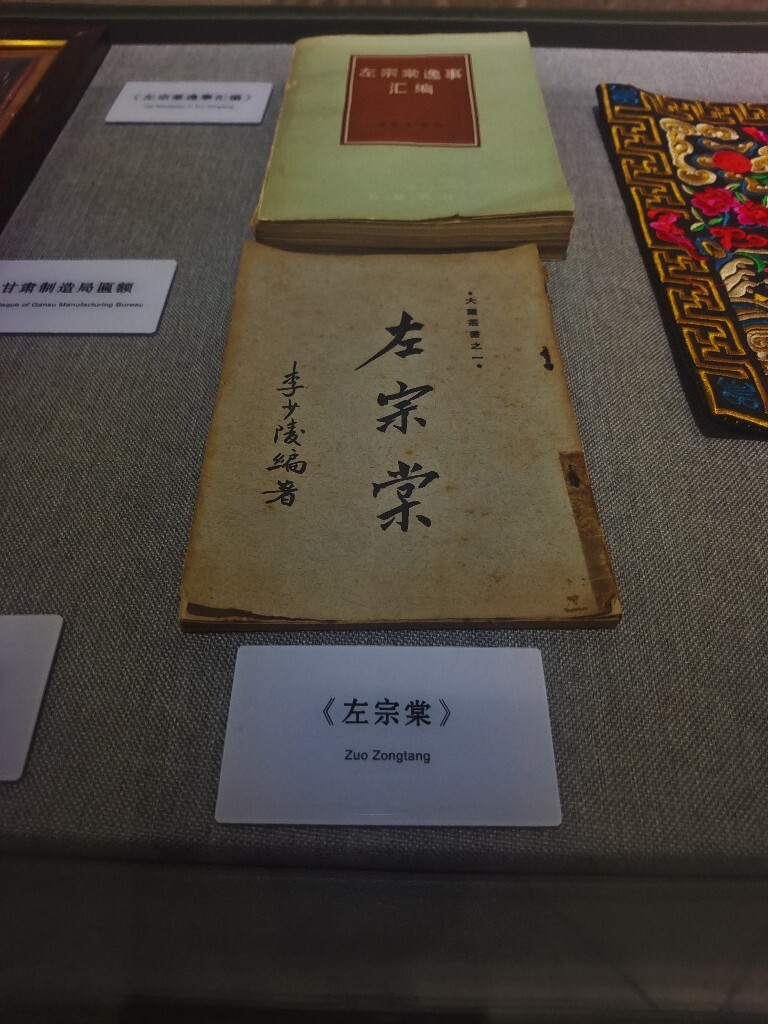 左宗棠逸事
汇编
《左宗棠逸事汇编》
甘肃制造局匾额
laque of Gansu Manufacturing Bureau
左宗棠
李少陵編著
《左宗棠》
Zuo Zongtang